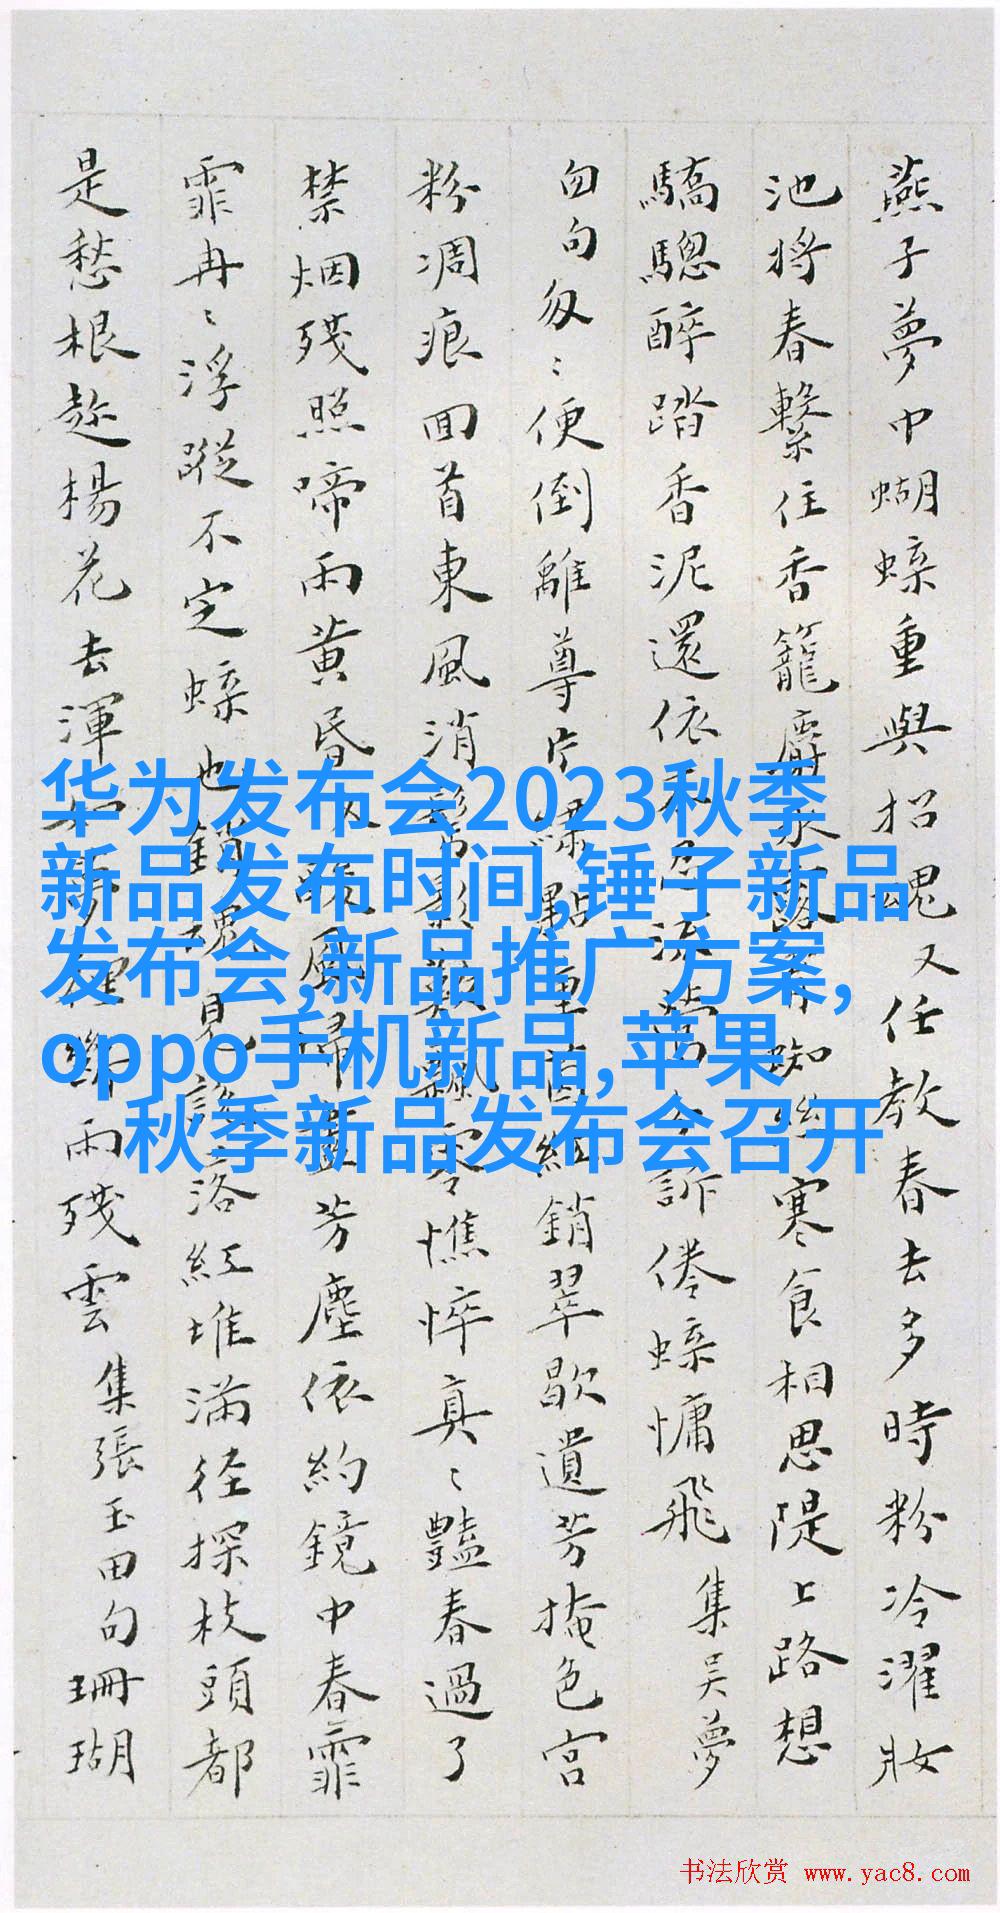 燕子夢中蝴蜨重與招魂又任教春去多時粉冷濯妝
池將春繫住香籠麝水寒食相思隄上路想
驕驄醉踏香泥還依訴倦蜨慵飛 集吴夢
匆匆便倒離尊片重銷翠歇遺芳掩色宮
粉凋痕回首東風消影飄零憔悴真〻豔春過了
禁烟殘照啼雨黄昏風掃芳塵依約鏡中春霏
霏冉〻浮蹤不定蜨也見落紅堆滿徑探枝頭都
是愁根趂楊花去渾雨殘雲 集張玉田句珊瑚
华为发布会2023秋季
新品发布时间,锤子新品
发布会,新品推广方案,
oppo手机新品,苹果
秋季新品发布会召开
书法欣赏 www.yac8.com